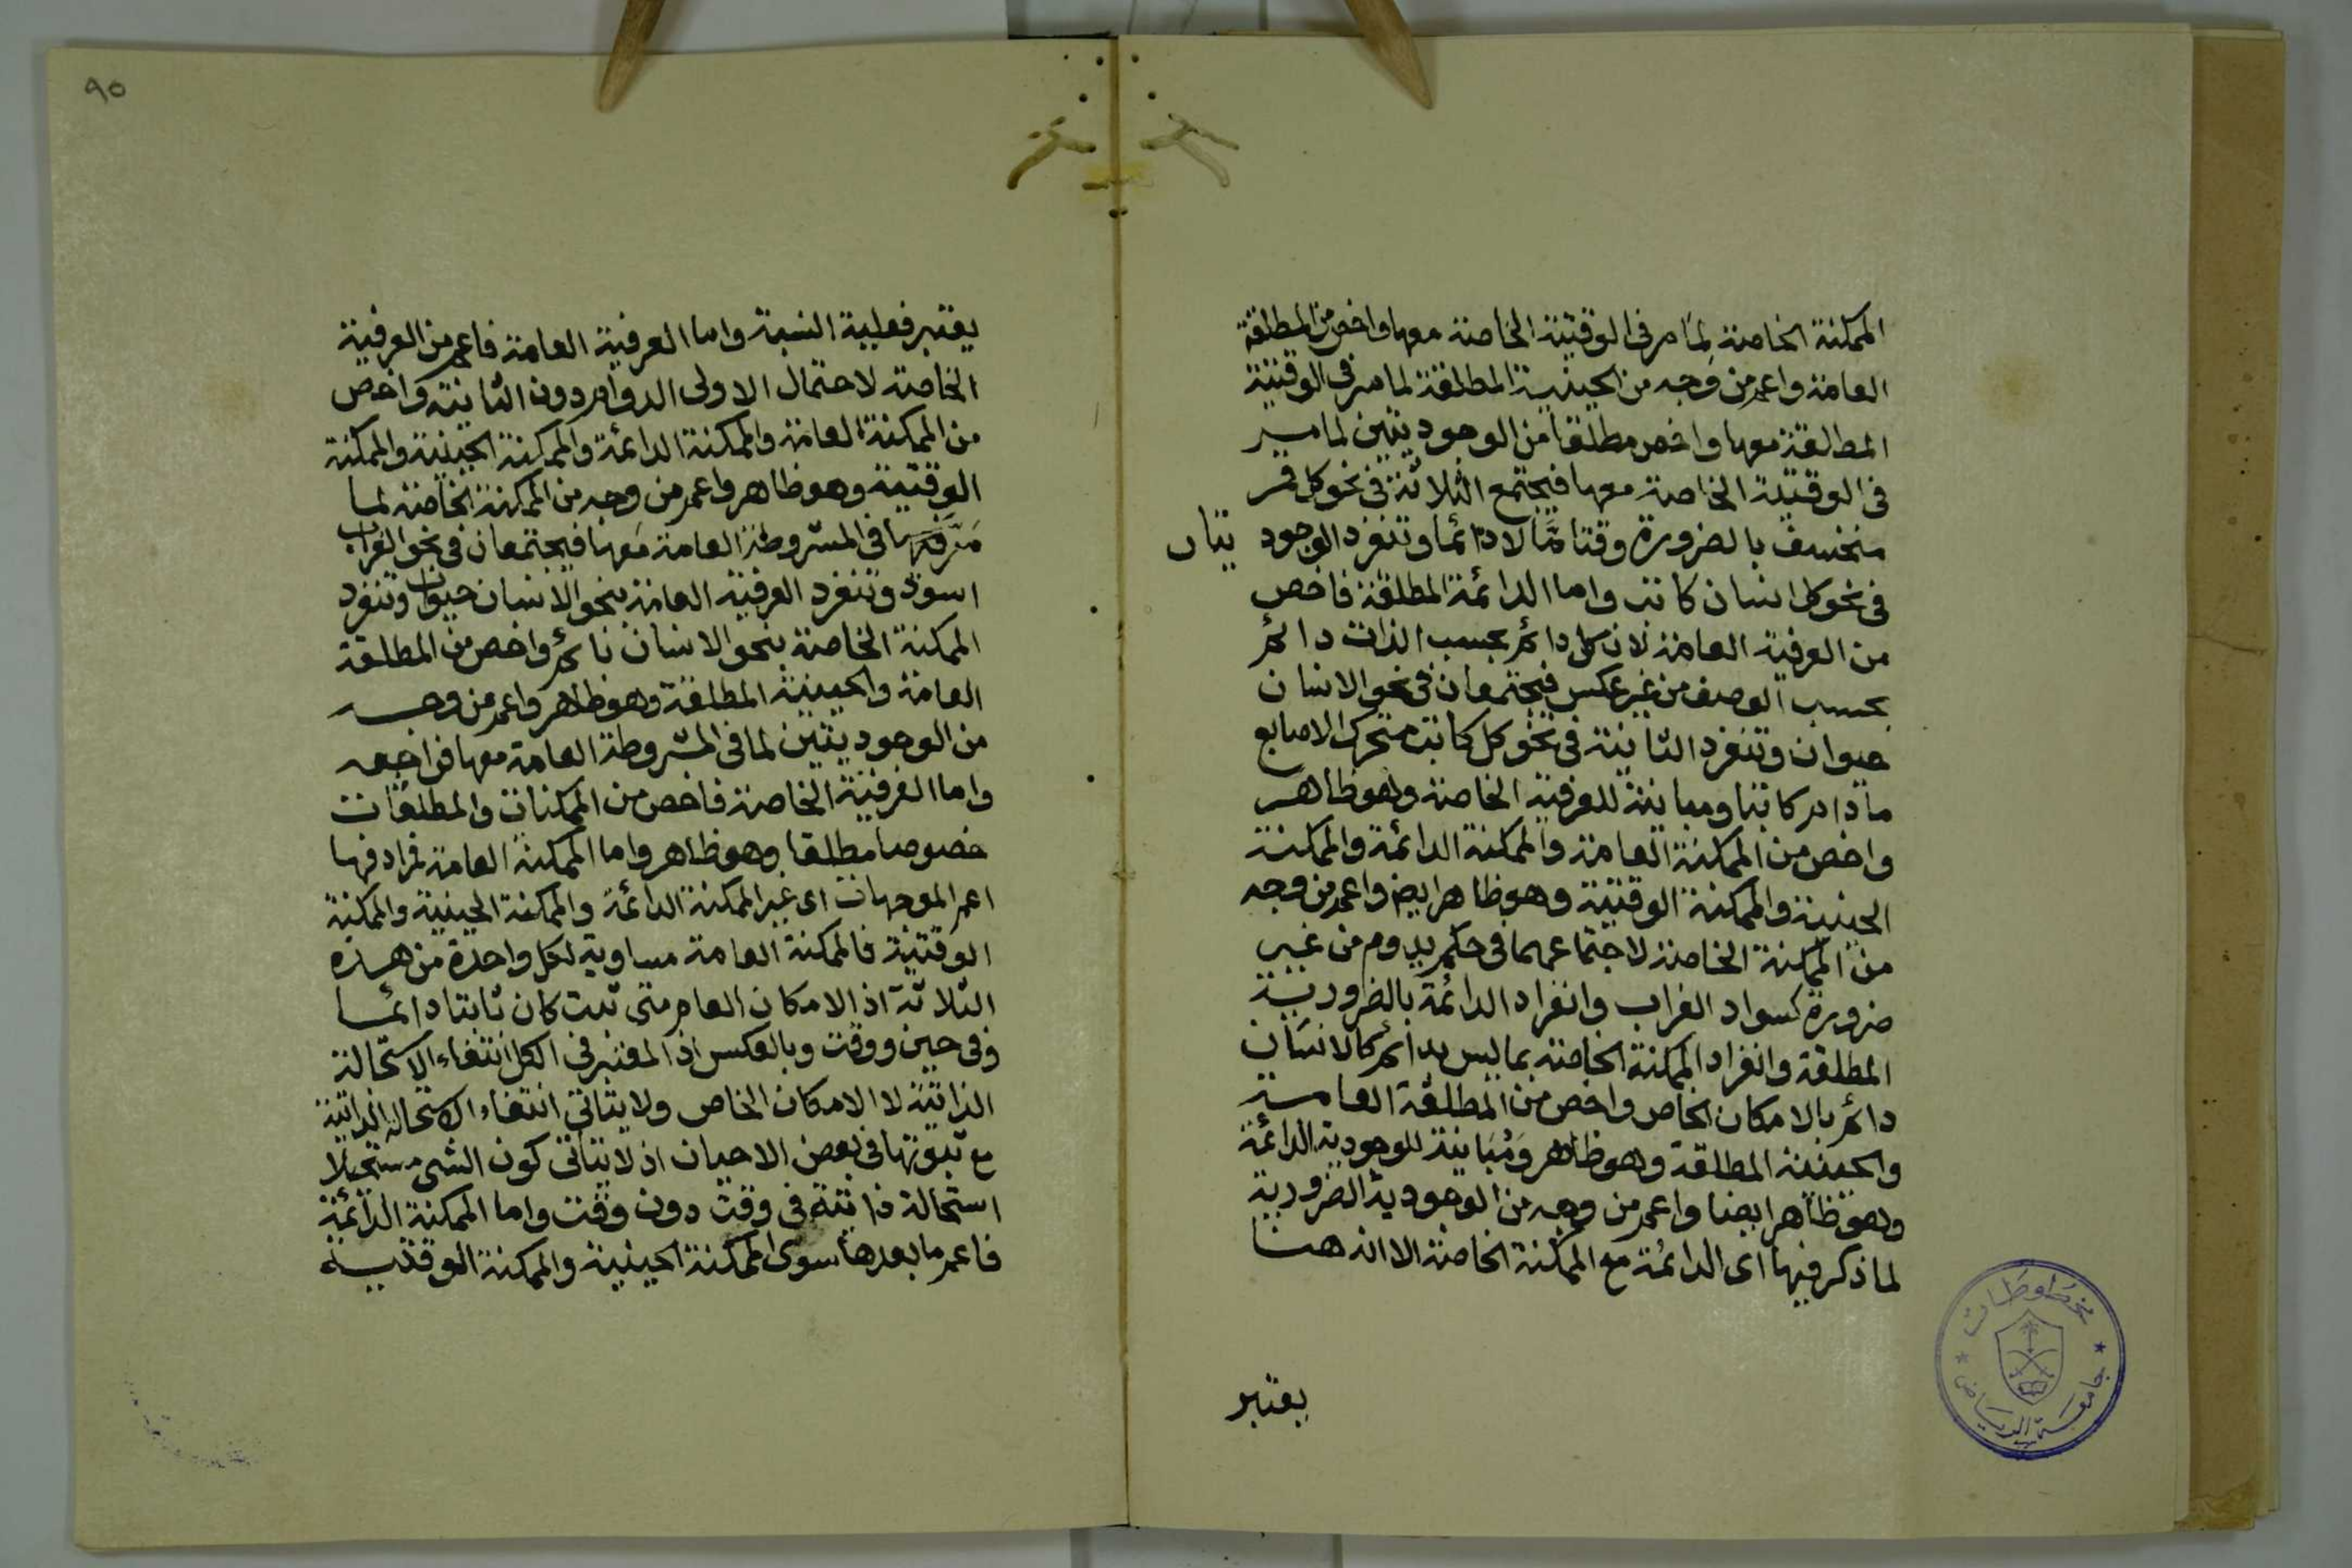 الممكنة الخاصة لما مر فى الوقتية الخاصة معها واخص من المطلقة
العامة واعم من وجه من الحينية المطلقة لما مر فى الوقتية
المطلقة معها واخص مطلقا من الوجوديتين لما مر
فى الوقتية الخاصة معها فيجتمع الثلاثة فى نحو كل قمر
منخسف بالضرورة وقتا مّا لا دائما وتنفرد الوجود يتان
فى نحو كل انسان كاتب واما الدائمة المطلقة فاخص
من العرفية العامة لان كل دائم بحسب الذات دائم
بحسب الوصف من غير عكس فيجتمعان فى نحو الانسان
حيوان وتنفرد الثانية فى نحو كل كاتب متحرك الاصابع
ما دام كاتبا ومباينة للعرفية الخاصة وهو ظاهر
واخص من الممكنة العامة والممكنة الدائمة والممكنة
الحينية والممكنة الوقتية وهو ظاهر ايض واعم من وجه
من الممكنة الخاصة لاجتماعهما فى حكم يدوم من غير
ضرورة كسواد الغراب وانفراد الدائمة بالضرورية
المطلقة وانفراد الممكنة الخاصة بما ليس بدائم كالانسان
دائم بالامكان الخاص واخص من المطلقة العامة
والحينية المطلقة وهو ظاهر ومباينة للوجودية الدائمة
وهو ظاهر ايضا واعم من وجه من الوجودية الضرورية
لما ذكر فيها اى الدائمة مع الممكنة الخاصة الا انه هنا
يعتبر
مخطوطات
جامعة الرياض
٩٥
يعتبر فعلية النسبة واما العرفية العامة فاعم من العرفية
الخاصة لاحتمال الاولى الدوام دون الثانية واخص
من الممكنة العامة والممكنة الدائمة والممكنة الحينية والممكنة
الوقتية وهو ظاهر واعم من وجه من الممكنة الخاصة لما
فى المشروطة العامة معها فيجتمعان فى نحو الغراب
اسود وتنفرد العرفية العامة بنحو الانسان حيوان وتنفرد
الممكنة الخاصة بنحو الانسان نائم واخص من المطلقة
العامة والحينية المطلقة وهو ظاهر واعم من وجه
من الوجوديتين لما فى المشروطة العامة معها فراجعه
واما العرفية الخاصة فاخص من الممكنات والمطلقات
خصوصا مطلقا وهو ظاهر واما الممكنة العامة فمرادفها
اعم الموجهات اى غير الممكنة الدائمة والممكنة الحينية والممكنة
الوقتية فالممكنة العامة مساوية لكل واحدة من هذه
الثلاثة اذ الامكان العام متى ثبت كان ثابتا دائما
وفى حين ووقت وبالعكس اذ المعتبر فى الكل انتفاء الاستحالة
الذاتية لا الامكان الخاص ولا يتاتى انتفاء الاستحالة الذاتية
مع ثبوتها فى بعض الاحيان اذ لا يتاتى كون الشى مستحيلا
استحالة ذاتية فى وقت دون وقت واما الممكنة الدائمة
فاعم ما بعدها سوى الممكنة الحينية والممكنة الوقتية